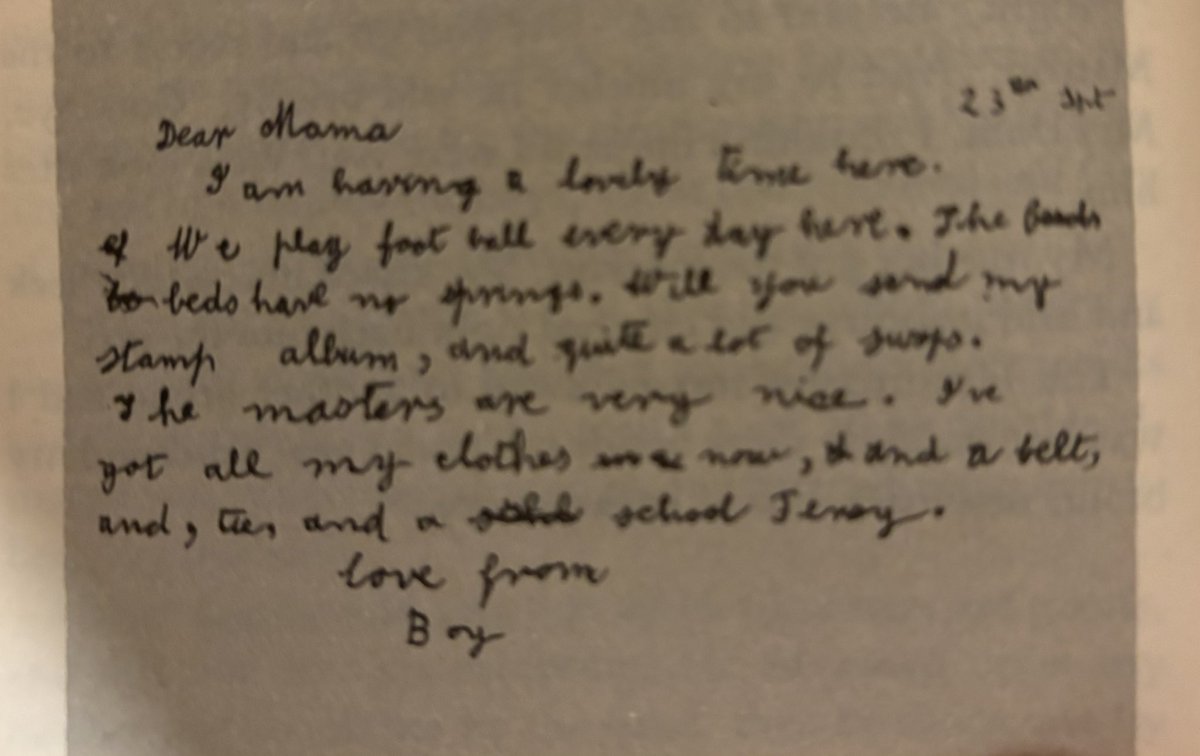 23th Spt
Dear Mama
I am having a lovely time here.
We play foot ball every day here. The
beds have no springs. Will you send my
stamp album, and quite a lot of swops.
The masters are very nice. I've
got all my clothes now, and a belt,
and, tie, and a school Jersy.
love from
Boy